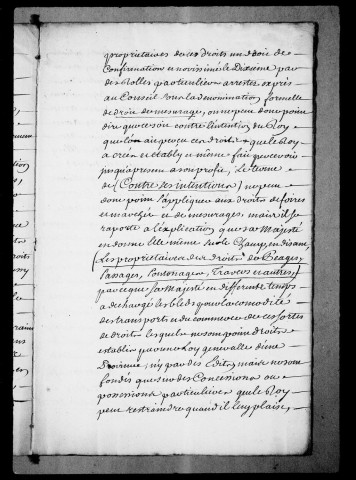 proprietaires de ces Droits un droit de
Confirmation et novissimé le Dixieme par
des Rolles particuliers arrestez exprès
au Conseil sous la denomination formelle
de droit de mesurage, on ne peut donc point
dire que ce soit contre l'intention du Roy
que l'on ait perçu ces droits que le Roy
a créé et etably et mesme fait percevoir
jusqu'a present a son profit, Le terme
de (Contre ses intentions) ne peut
donc point s'appliquer aux droits de foires
et marchez et de mesurages, mais il se
raporte a l'explication que sa Majesté
en donne Elle mesme sur le Champ en disant,
(Les proprietaires des droits de Peages,
Passages, Pontonages, Travers et autres)
parce que sa Majesté en differents temps
a dechargé les bleds pour la commodité
des transports et du commerce de ces sortes
de droits lesquels ne sont point droits
establis par une Loy generalle d'une
Province, ny par des Edits, mais ne sont
fondés que sur des Concessions ou
possessions particulieres que le Roy
peut restraindre quand il luy plaist,